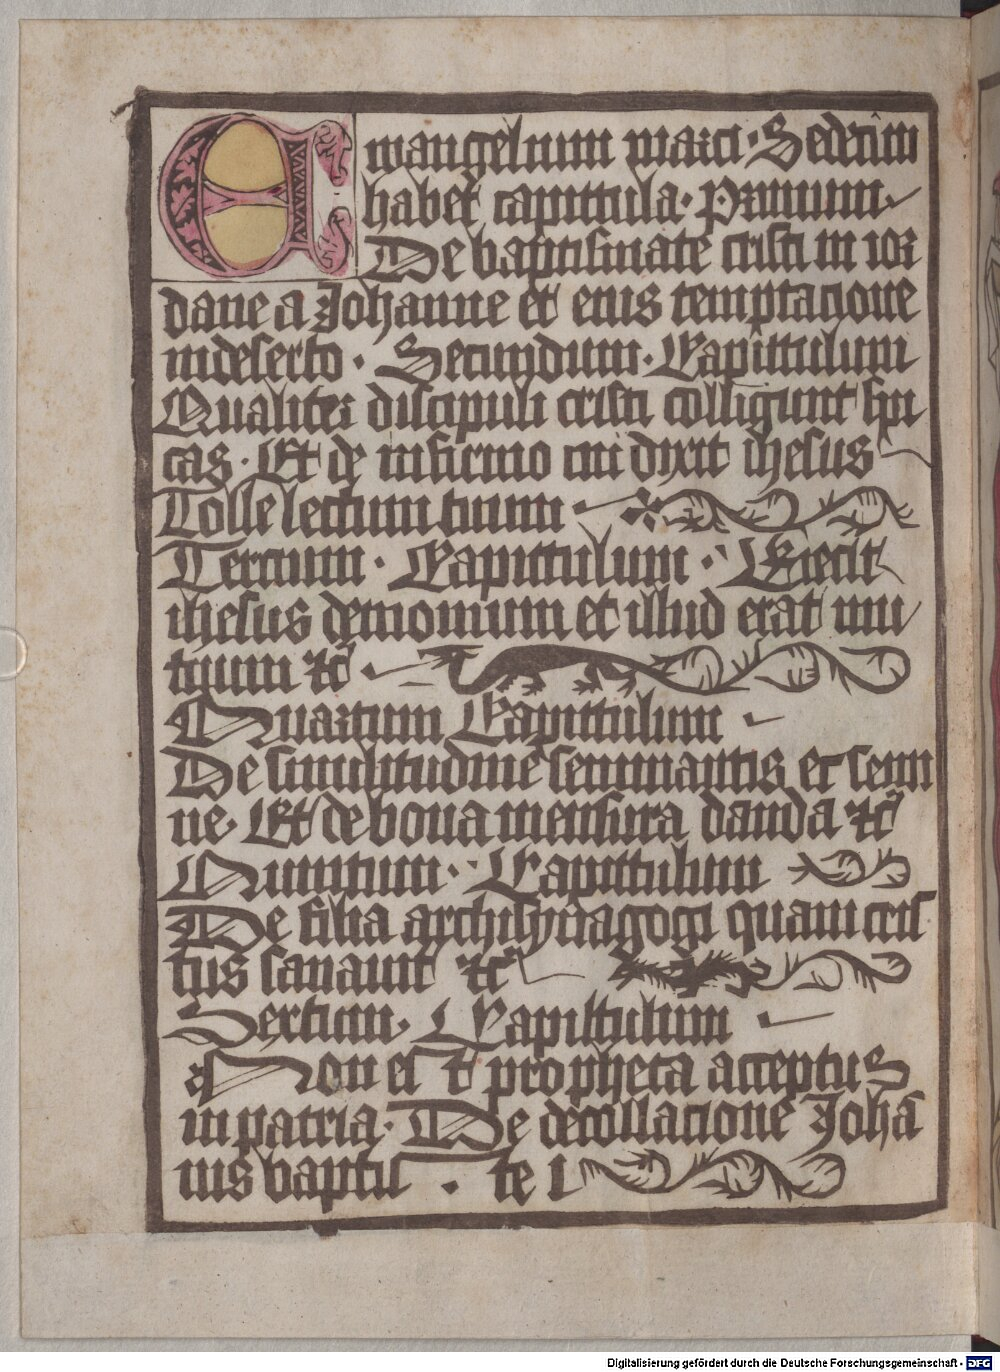 Ewangelium marci · Sedecim
habet capittula · Primum
De baptismate cristi in ior
dane a Johanne et eius temptacione
in deserto · Secundum · Capittulum
Qualiter discipuli cristi colligunt spi
cas · Et de infirmo cui dixit ihesus
Tolle lectum tuum
Tercium · Capittulum · Eiecit
ihesus demonium et illud erat mu
tuum etc
Quartum Capittulum
De similitudine seminantis et semi
ne · Et de bona mensura danda etc
Quintum · Capittulum
De filia archisynagogi quam cris
tus sanauit etc
Sextum · Capittulum
Non est propheta acceptus
in patria · De decollacione Johā
nis bapti · te
Digitalisierung gefördert durch die Deutsche Forschungsgemeinschaft - DFG